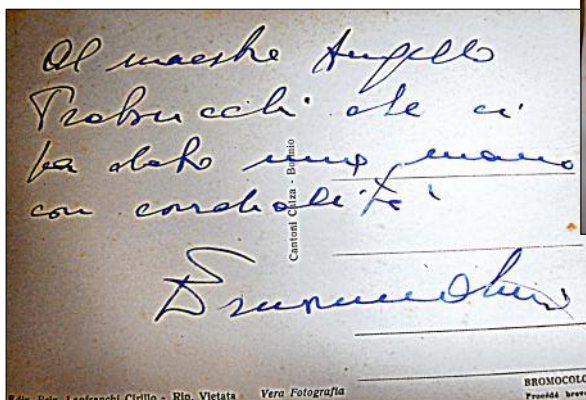 Al maestro Angello
Trabucchi che ci
ha dato una mano
con cordialità
Cantoni Calza - Bormio
Ediz. Priv. Lanfranchi Cirillo - Rip. Vietata
Vera Fotografia
BROMOCOLO
Procédé brev